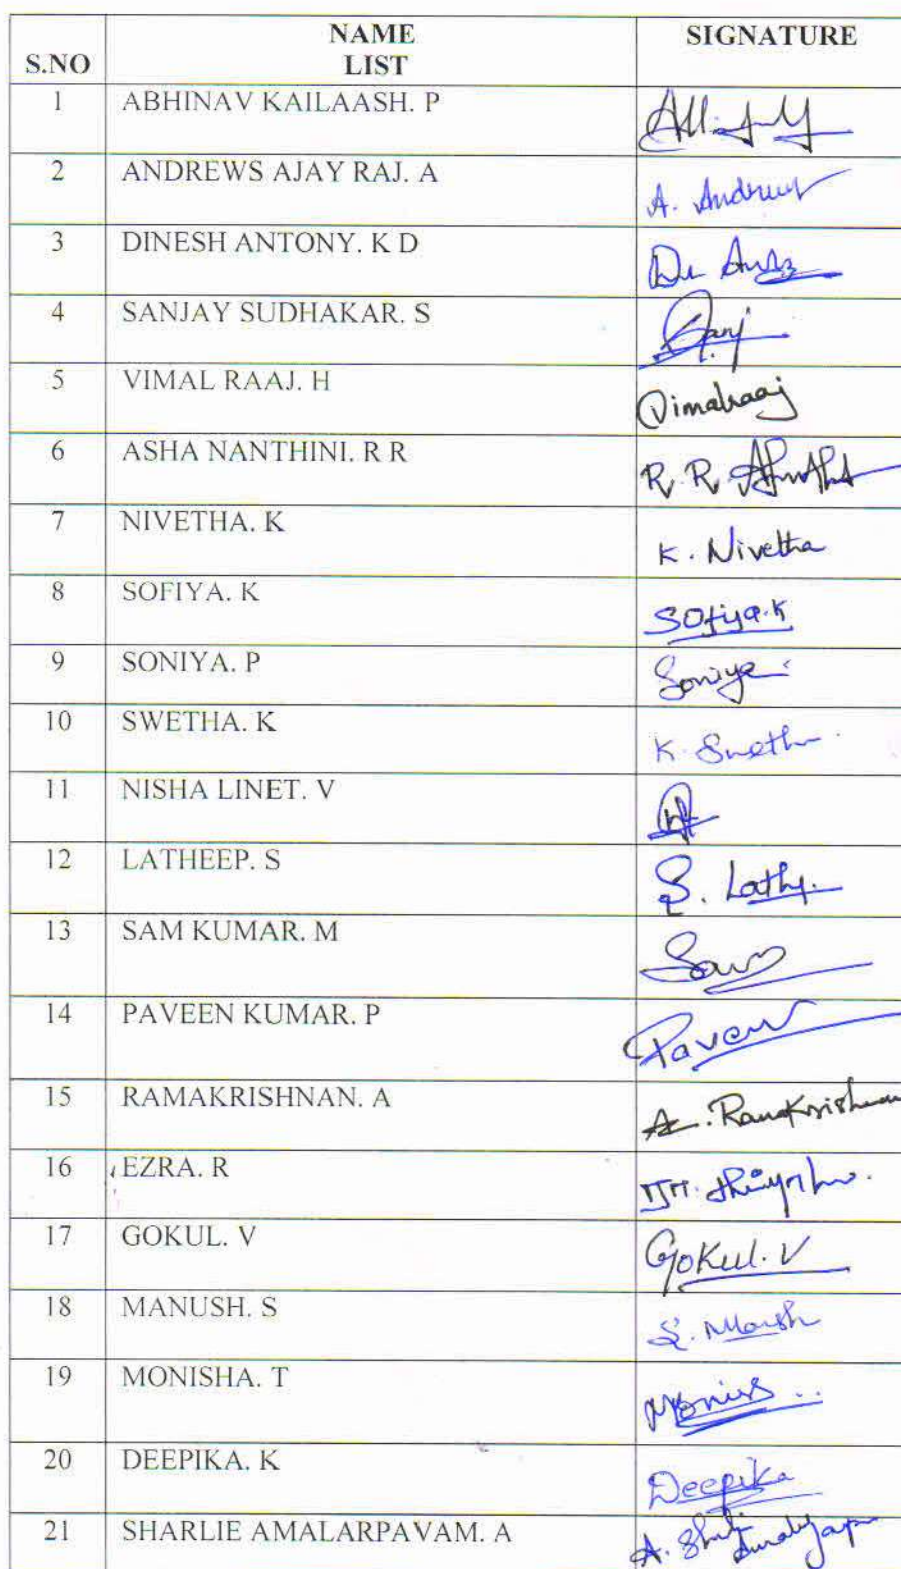 S.NO NAME LIST SIGNATURE
1 ABHINAV KAILAASH. P
2 ANDREWS AJAY RAJ. A A. Andrews
3 DINESH ANTONY. K D
4 SANJAY SUDHAKAR. S Sanj
5 VIMAL RAAJ. H Vimalraaj
6 ASHA NANTHINI. R R R. R.
7 NIVETHA. K K. Nivetha
8 SOFIYA. K Sofiya.K
9 SONIYA. P Soniya
10 SWETHA. K K. Swetha
11 NISHA LINET. V
12 LATHEEP. S S. Lathp.
13 SAM KUMAR. M Sam
14 PAVEEN KUMAR. P Paveen
15 RAMAKRISHNAN. A A. Ramakrishnan
16 EZRA. R
17 GOKUL. V Gokul. V
18 MANUSH. S S. Manush
19 MONISHA. T Monisha
20 DEEPIKA. K Deepika
21 SHARLIE AMALARPAVAM. A A.